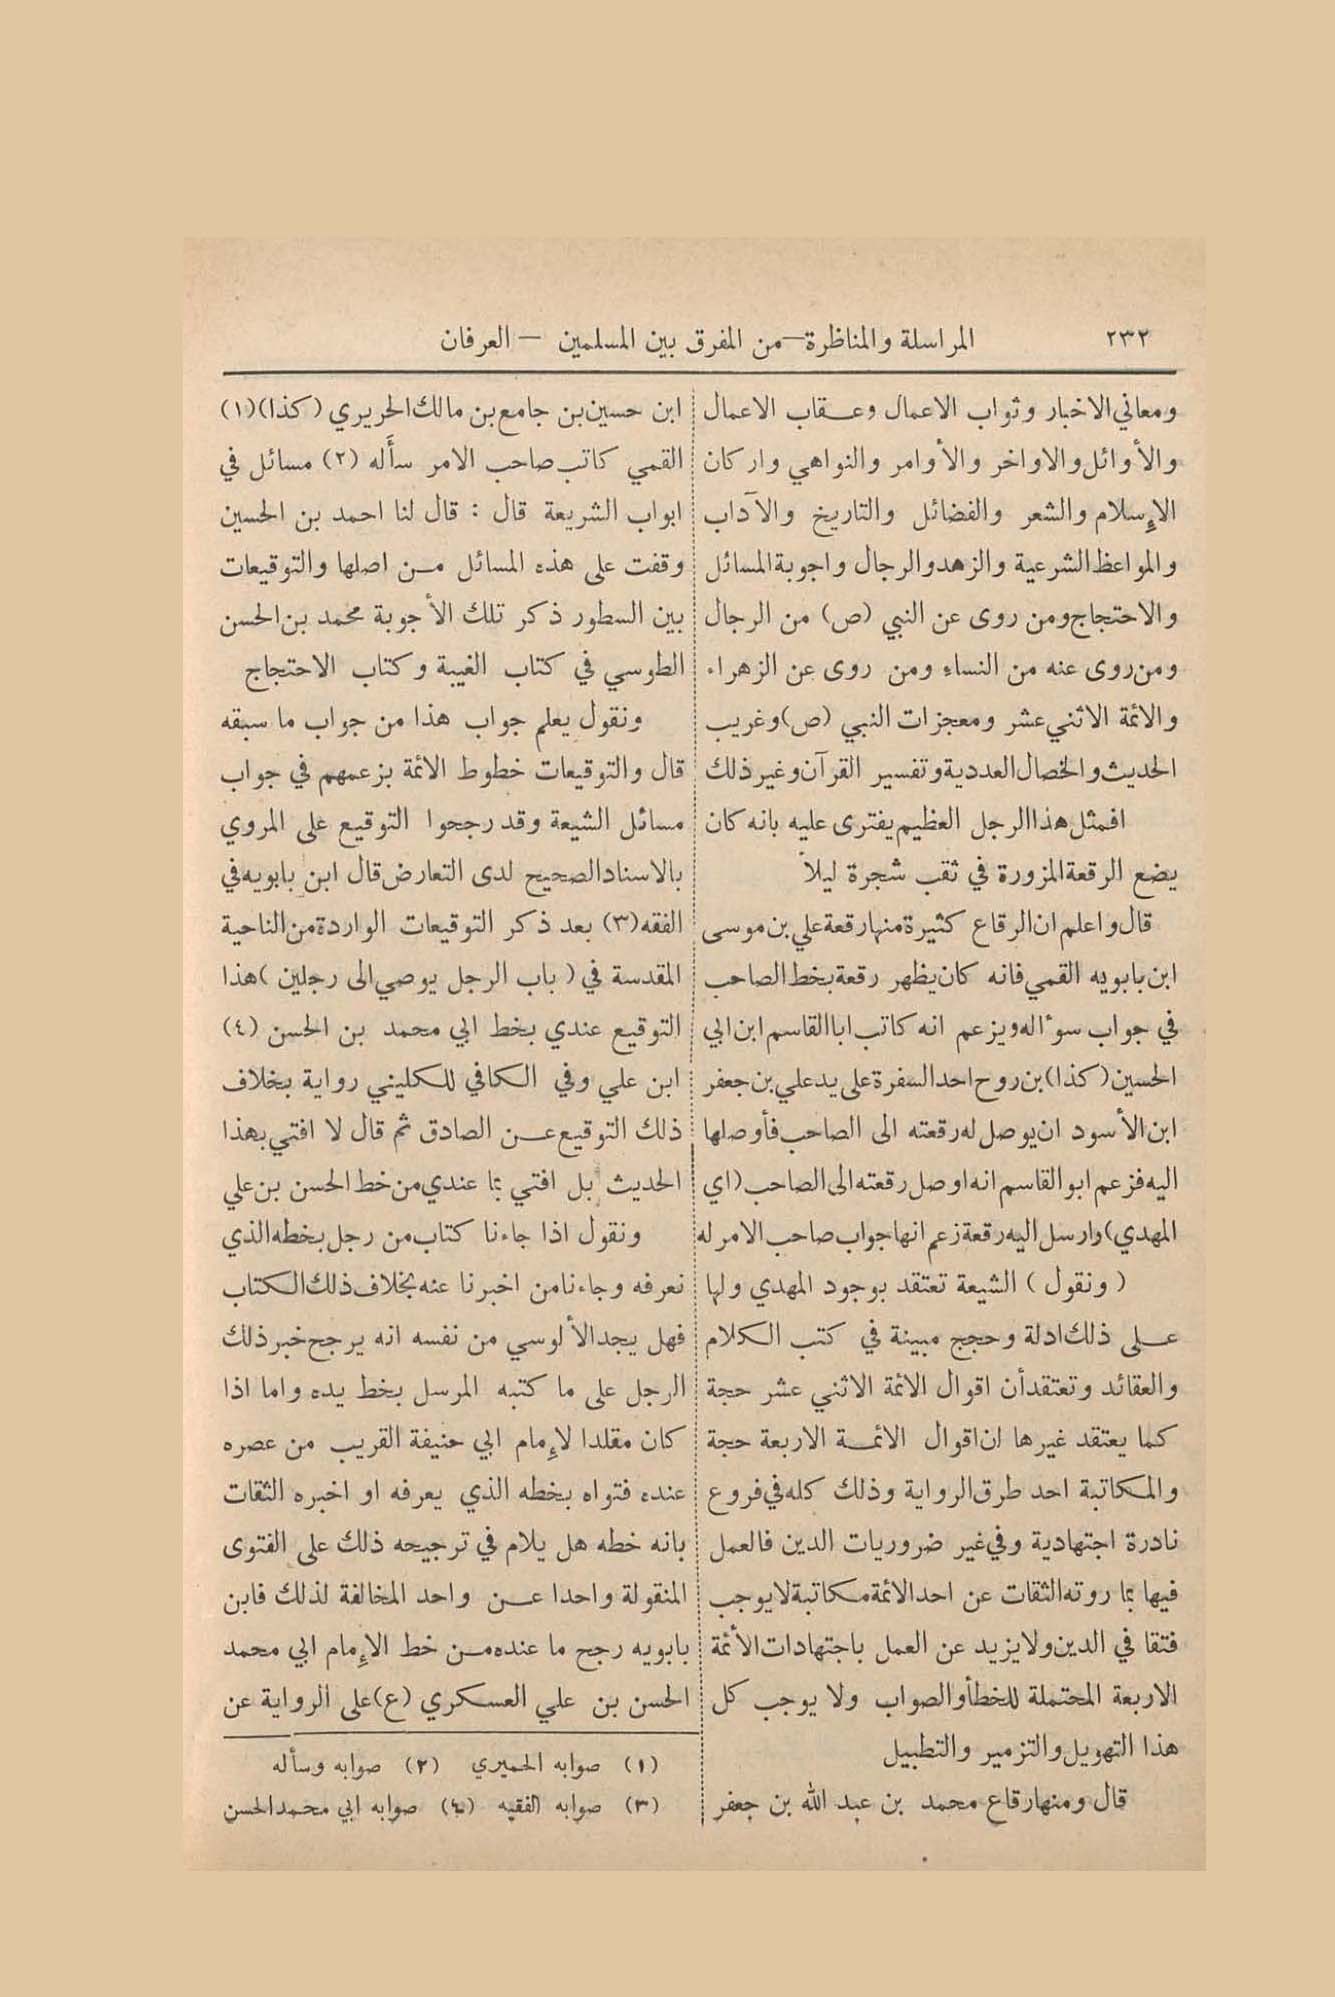 ٢٣٢
المراسلة والمناظرة — من المفرق بين المسلمين — العرفان
ومعاني الاخبار وثواب الاعمال وعقاب الاعمال
والأوائل والاواخر والأوامر والنواهي واركان
الإسلام والشعر والفضائل والتاريخ والآداب
والمواعظ الشرعية والزهد والرجال واجوبة المسائل
والاحتجاج ومن روى عن النبي (ص) من الرجال
ومن روى عنه من النساء ومن روى عن الزهراء
والائمة الاثني عشر ومعجزات النبي (ص) وغريب
الحديث والخصال العددية وتفسير القرآن وغير ذلك
افمثل هذا الرجل العظيم يفترى عليه بانه كان
يضع الرقعة المزورة في ثقب شجرة ليلاً
قال واعلم ان الرقاع كثيرة منها رقعة علي بن موسى
ابن بابويه القمي فانه كان يظهر رقعة بخط الصاحب
في جواب سوءاله ويزعم انه كاتب ابا القاسم ابن ابي
الحسين (كذا) بن روح احد السفرة على يد علي بن جعفر
ابن الأسود ان يوصل له رقعته الى الصاحب فأوصلها
اليه فزعم ابو القاسم انه اوصل رقعته الى الصاحب (اي
المهدي) وارسل اليه رقعة زعم انها جواب صاحب الامر له
( ونقول ) الشيعة تعتقد بوجود المهدي ولها
على ذلك ادلة وحجج مبينة في كتب الكلام
والعقائد وتعتقد أن اقوال الائمة الاثني عشر حجة
كما يعتقد غيرها ان اقوال الائمة الاربعة حجة
والمكاتبة احد طرق الرواية وذلك كله في فروع
نادرة اجتهادية وفي غير ضروريات الدين فالعمل
فيها بما روته الثقات عن احد الائمة مكاتبة لا يوجب
فتقا في الدين ولا يزيد عن العمل باجتهادات الأئمة
الاربعة المحتملة للخطأ والصواب ولا يوجب كل
هذا التهويل والتزمير والتطبيل
قال ومنها رقاع محمد بن عبد الله بن جعفر
ابن حسين بن جامع بن مالك الحريري (كذا) (١)
القمي كاتب صاحب الامر سأَله (٢) مسائل في
ابواب الشريعة قال : قال لنا احمد بن الحسين
وقفت على هذه المسائل من اصلها والتوقيعات
بين السطور ذكر تلك الأجوبة محمد بن الحسن
الطوسي في كتاب الغيبة وكتاب الاحتجاج
ونقول يعلم جواب هذا من جواب ما سبقه
قال والتوقيعات خطوط الائمة بزعمهم في جواب
مسائل الشيعة وقد رجحوا التوقيع على المروي
بالاسناد الصحيح لدى التعارض قال ابن بابويه في
الفقه (٣) بعد ذكر التوقيعات الواردة من الناحية
المقدسة في ( باب الرجل يوصي الى رجلين ) هذا
التوقيع عندي بخط ابي محمد بن الحسن (٤)
ابن علي وفي الكافي للكليني رواية بخلاف
ذلك التوقيع عن الصادق ثم قال لا افتي بهذا
الحديث بل افتي بما عندي من خط الحسن بن علي
ونقول اذا جاءنا كتاب من رجل بخطه الذي
نعرفه وجاءنا من اخبرنا عنه بخلاف ذلك الكتاب
فهل يجد الألوسي من نفسه انه يرجح خبر ذلك
الرجل على ما كتبه المرسل بخط يده واما اذا
كان مقلدا لإمام ابي حنيفة القريب من عصره
عنده فتواه بخطه الذي يعرفه او اخبره الثقات
بانه خطه هل يلام في ترجيحه ذلك على الفتوى
المنقولة واحدا عن واحد المخالفة لذلك فابن
بابويه رجح ما عنده من خط الإمام ابي محمد
الحسن بن علي العسكري (ع) على الرواية عن
(١) صوابه الحميري (٢) صوابه وسأله
(٣) صوابه الفقيه (٤) صوابه ابي محمد الحسن